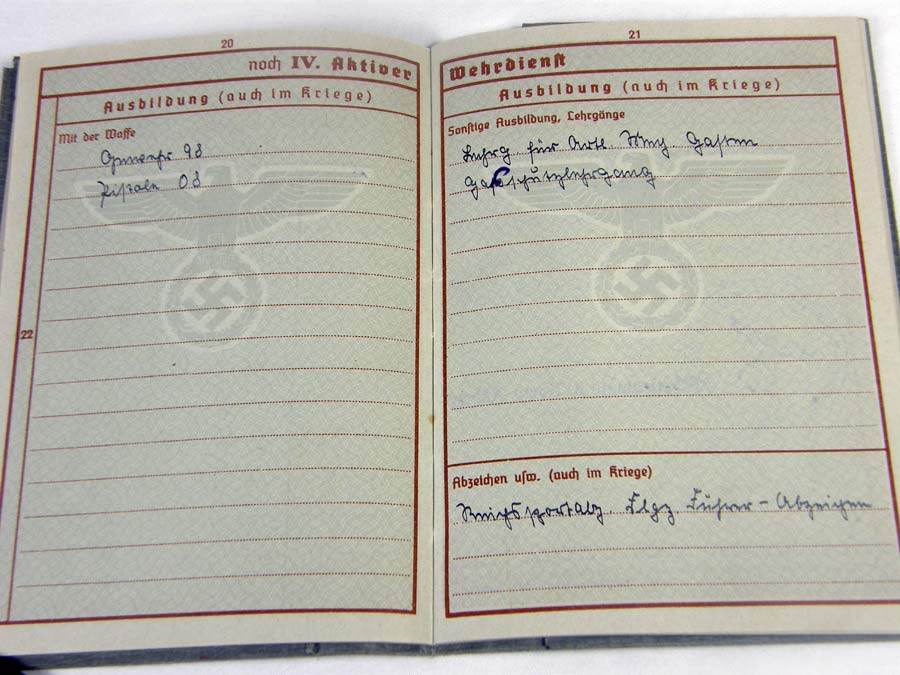 20
noch IV. Aktiver
Ausbildung (auch im Kriege)
Mit der Waffe
Gewehr 98
Pistole 08
22
21
Wehrdienst
Ausbildung (auch im Kriege)
Sonstige Ausbildung, Lehrgänge
Lehrg. für Artl.
Gasschutzlehrgang
Abzeichen usw. (auch im Kriege)
Reichssportabz. Flgz. Führer-Abzeichen